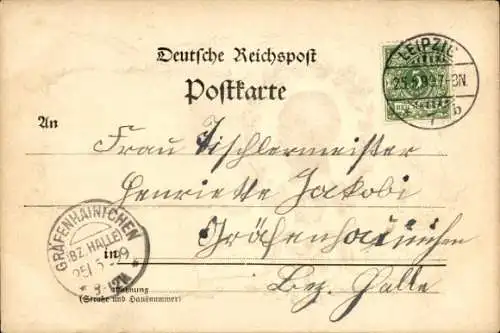 Deutsche Reichspost
Postkarte
LEIPZIG
7-8N.
5
An
Frau Tischlermeister
Henriette Jakobi
in Gräfenhainichen
Bez. Halle
GRÄFENHAINICHEN
(BZ. HALLE)
Wohnung
(Straße und Hausnummer)